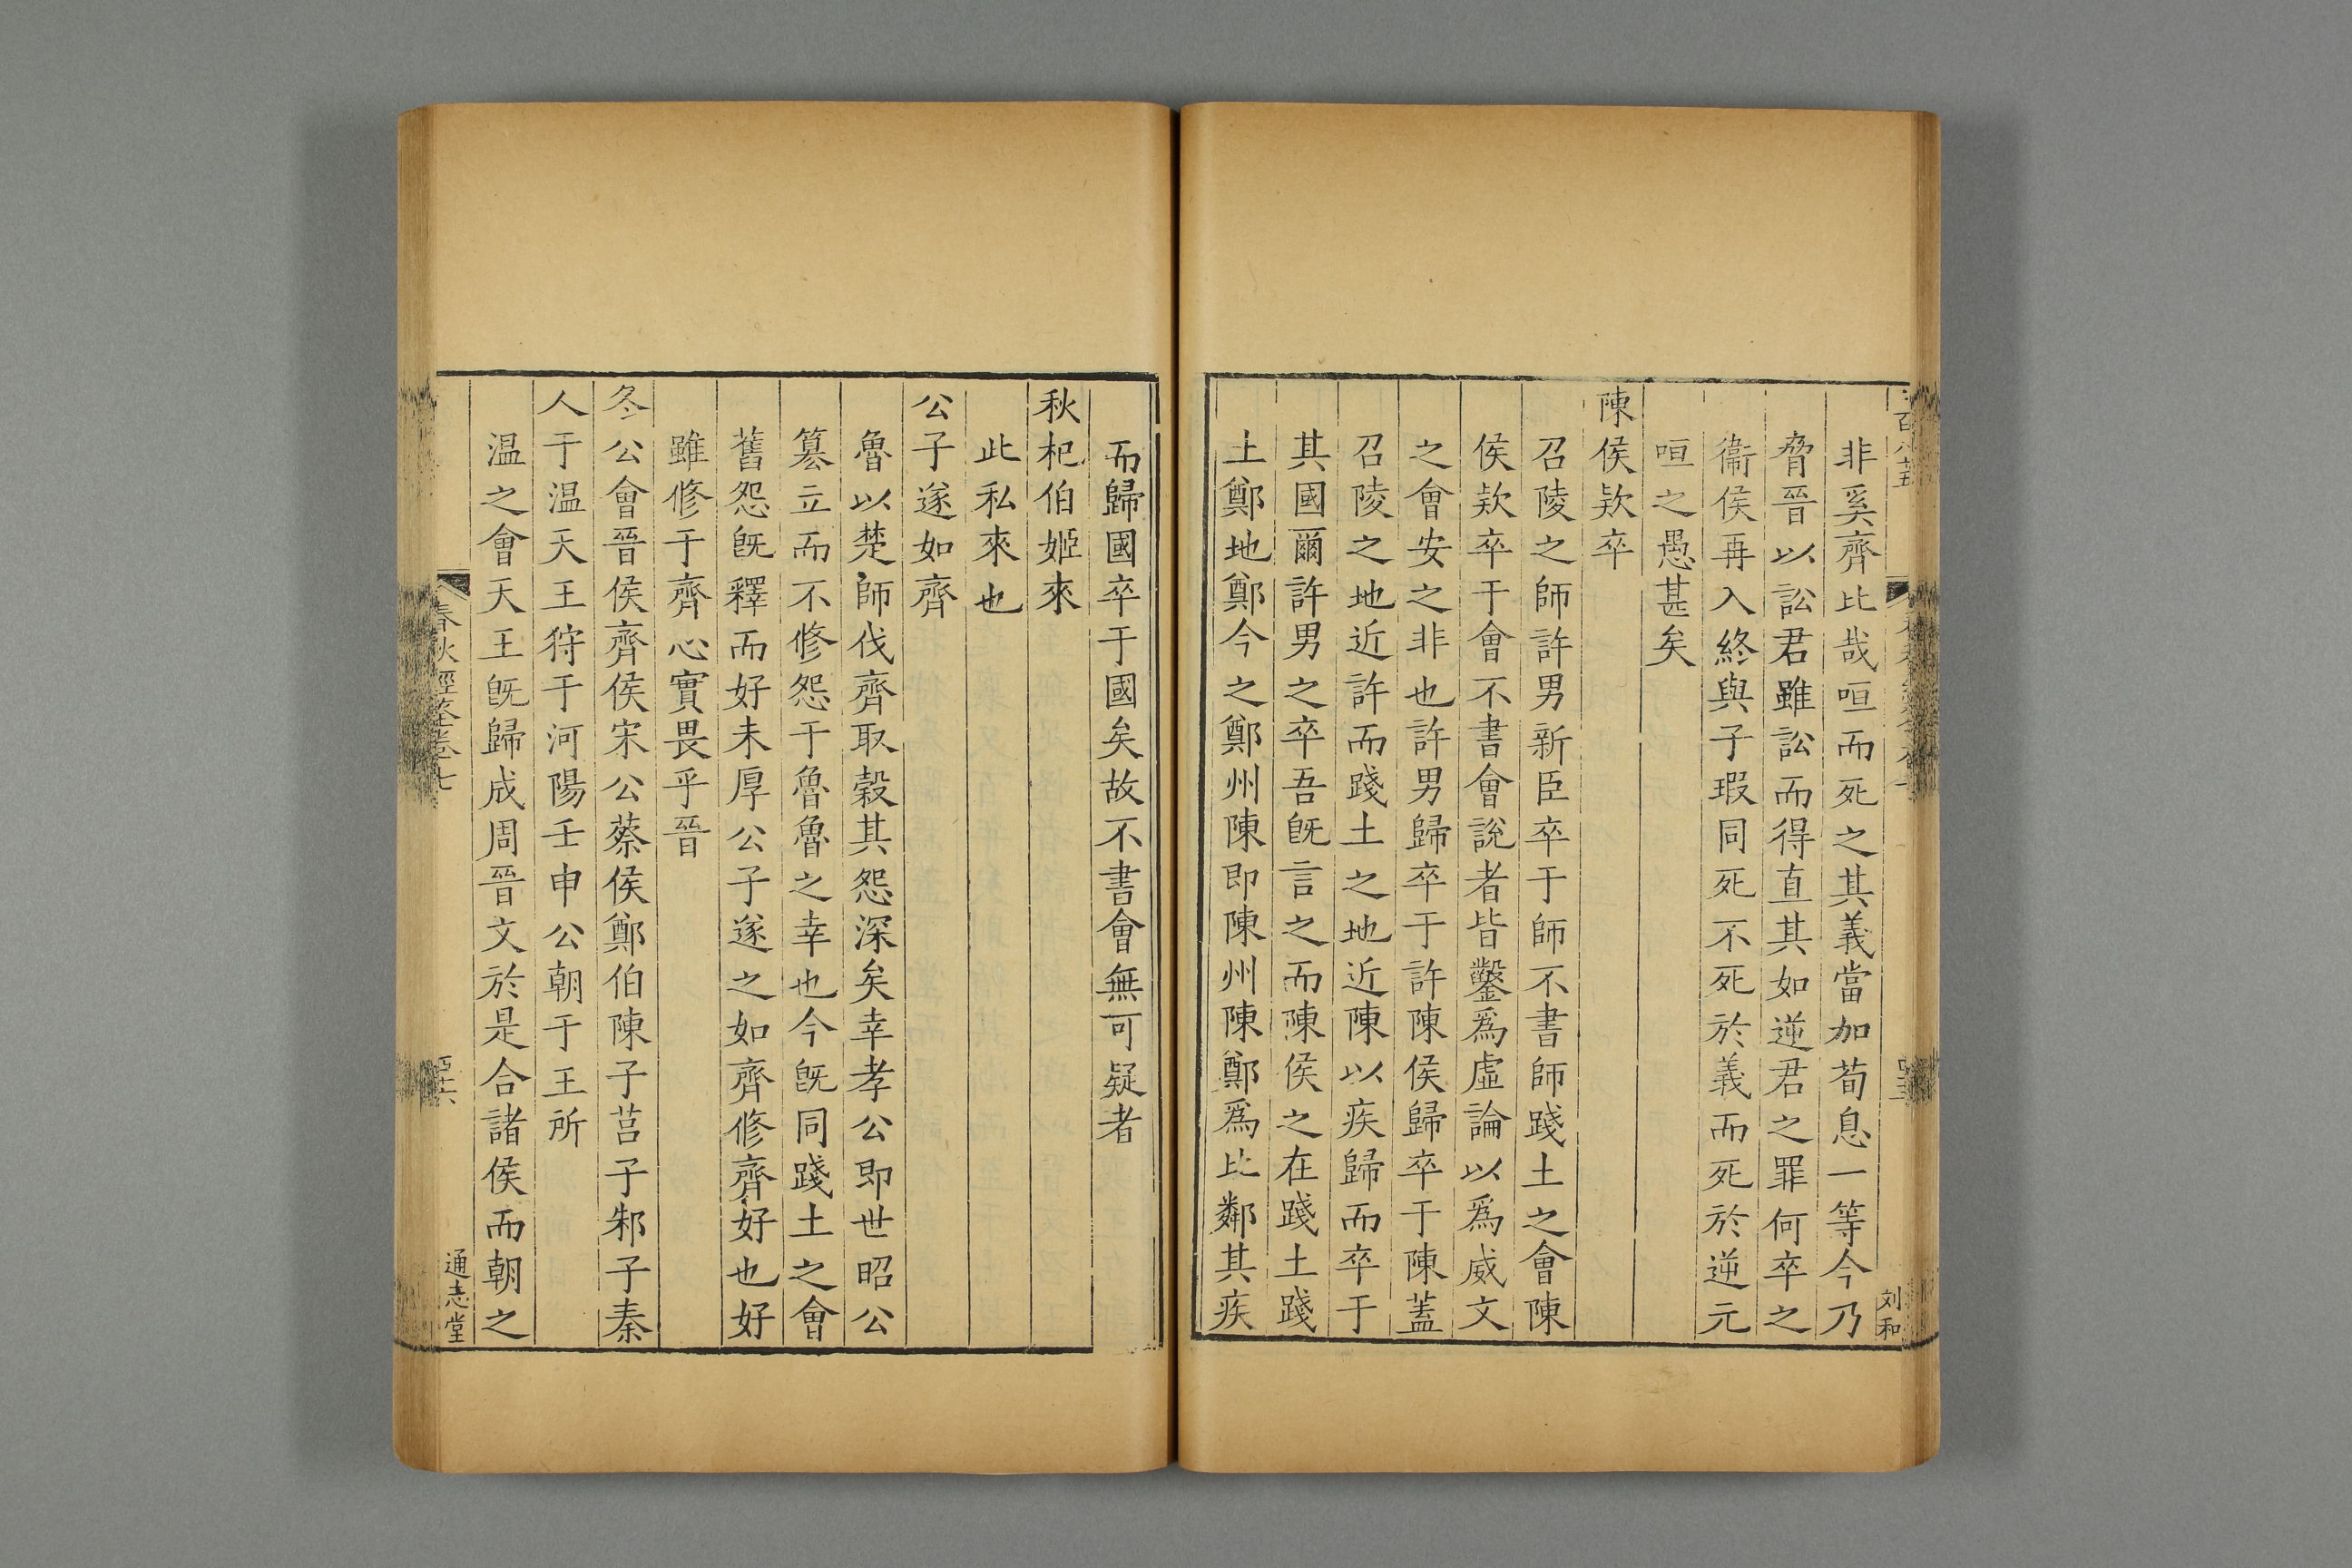 非奚齊比哉咺而死之其義當加荀息一等今乃
脅晉以訟君雖訟而得直其如逆君之罪何卒之
衞侯再入終與子瑕同死不死於義而死於逆元
咺之愚甚矣
陳侯欵卒
召陵之師許男新臣卒于師不書師踐土之會陳
侯欵卒于會不書會說者皆鑿爲虛論以爲威文
之會安之非也許男歸卒于許陳侯歸卒于陳蓋
召陵之地近許而踐土之地近陳以疾歸而卒于
其國爾許男之卒吾旣言之而陳侯之在踐土踐
土鄭地鄭今之鄭州陳即陳州陳鄭爲比鄰其疾
刘和
而歸國卒于國矣故不書會無可疑者
秋杞伯姬來
此私來也
公子遂如齊
魯以楚師伐齊取穀其怨深矣幸孝公即世昭公
篡立而不修怨于魯魯之幸也今旣同踐土之會
舊怨旣釋而好未厚公子遂之如齊修齊好也好
雖修于齊心實畏乎晉
冬公會晉侯齊侯宋公蔡侯鄭伯陳子莒子邾子秦
人于温天王狩于河陽壬申公朝于王所
温之會天王旣歸成周晉文於是合諸侯而朝之
春秋經筌卷七
通志堂